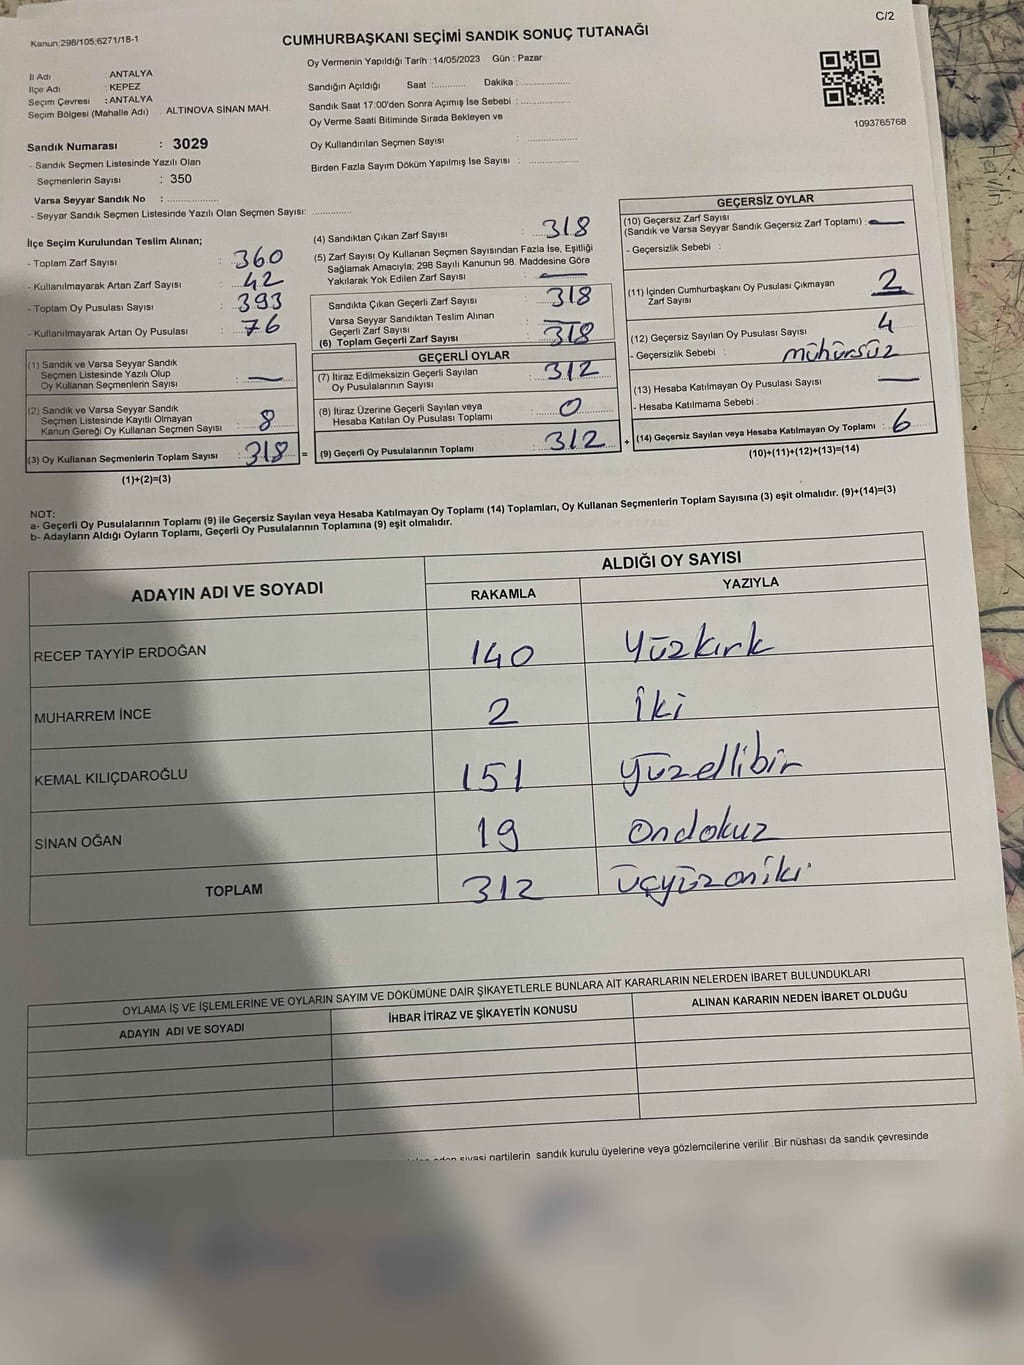 C/2
Kanun:298/105;6271/18-1
CUMHURBAŞKANI SEÇİMİ SANDIK SONUÇ TUTANAĞI
Oy Vermenin Yapıldığı Tarih : 14/05/2023 Gün : Pazar
İl Adı : ANTALYA
İlçe Adı : KEPEZ
Seçim Çevresi : ANTALYA
Seçim Bölgesi (Mahalle Adı) : ALTINOVA SİNAN MAH.
Sandığın Açıldığı Saat :........... Dakika :................
Sandık Saat 17:00'den Sonra Açımış İse Sebebi :................
Oy Verme Saati Bitiminde Sırada Bekleyen ve
Oy Kullandırılan Seçmen Sayısı :................
Birden Fazla Sayım Döküm Yapılmış İse Sayısı :................
1093765768
Sandık Numarası : 3029
- Sandık Seçmen Listesinde Yazılı Olan
Seçmenlerin Sayısı : 350
Varsa Seyyar Sandık No :................
- Seyyar Sandık Seçmen Listesinde Yazılı Olan Seçmen Sayısı: ............
İlçe Seçim Kurulundan Teslim Alınan;
- Toplam Zarf Sayısı : 360
- Kullanılmayarak Artan Zarf Sayısı : 42
- Toplam Oy Pusulası Sayısı : 393
- Kullanılmayarak Artan Oy Pusulası : 76
(1) Sandık ve Varsa Seyyar Sandık
Seçmen Listesinde Yazılı Olup
Oy Kullanan Seçmenlerin Sayısı : —
(2) Sandık ve Varsa Seyyar Sandık
Seçmen Listesinde Kayıtlı Olmayan
Kanun Gereği Oy Kullanan Seçmen Sayısı : 8
(3) Oy Kullanan Seçmenlerin Toplam Sayısı : 318 =
(1)+(2)=(3)
(4) Sandıktan Çıkan Zarf Sayısı : 318
(5) Zarf Sayısı Oy Kullanan Seçmen Sayısından Fazla İse, Eşitliği
Sağlamak Amacıyla; 298 Sayılı Kanunun 98. Maddesine Göre
Yakılarak Yok Edilen Zarf Sayısı : —
Sandıkta Çıkan Geçerli Zarf Sayısı : 318
Varsa Seyyar Sandıktan Teslim Alınan
Geçerli Zarf Sayısı : —
(6) Toplam Geçerli Zarf Sayısı : 318
GEÇERLİ OYLAR
(7) İtiraz Edilmeksizin Geçerli Sayılan
Oy Pusulalarının Sayısı : 312
(8) İtiraz Üzerine Geçerli Sayılan veya
Hesaba Katılan Oy Pusulası Toplamı : 0
(9) Geçerli Oy Pusulalarının Toplamı : 312 +
GEÇERSİZ OYLAR
(10) Geçersiz Zarf Sayısı
(Sandık ve Varsa Seyyar Sandık Geçersiz Zarf Toplamı) : —
- Geçersizlik Sebebi :
(11) İçinden Cumhurbaşkanı Oy Pusulası Çıkmayan
Zarf Sayısı : 2
(12) Geçersiz Sayılan Oy Pusulası Sayısı : 4
- Geçersizlik Sebebi : mühürsüz
(13) Hesaba Katılmayan Oy Pusulası Sayısı : —
- Hesaba Katılmama Sebebi :
(14) Geçersiz Sayılan veya Hesaba Katılmayan Oy Toplamı : 6
(10)+(11)+(12)+(13)=(14)
NOT:
a- Geçerli Oy Pusulalarının Toplamı (9) ile Geçersiz Sayılan veya Hesaba Katılmayan Oy Toplamı (14) Toplamları, Oy Kullanan Seçmenlerin Toplam Sayısına (3) eşit olmalıdır. (9)+(14)=(3)
b- Adayların Aldığı Oyların Toplamı, Geçerli Oy Pusulalarının Toplamına (9) eşit olmalıdır.
ADAYIN ADI VE SOYADI
ALDIĞI OY SAYISI
RAKAMLA YAZIYLA
RECEP TAYYİP ERDOĞAN 140 Yüzkırk
MUHARREM İNCE 2 İki
KEMAL KILIÇDAROĞLU 151 yüzellibir
SİNAN OĞAN 19 Ondokuz
TOPLAM 312 üçyüzoniki
OYLAMA İŞ VE İŞLEMLERİNE VE OYLARIN SAYIM VE DÖKÜMÜNE DAİR ŞİKAYETLERLE BUNLARA AİT KARARLARIN NELERDEN İBARET BULUNDUKLARI
ADAYIN ADI VE SOYADI İHBAR İTİRAZ VE ŞİKAYETİN KONUSU ALINAN KARARIN NEDEN İBARET OLDUĞU
siyasi partilerin sandık kurulu üyelerine veya gözlemcilerine verilir. Bir nüshası da sandık çevresinde